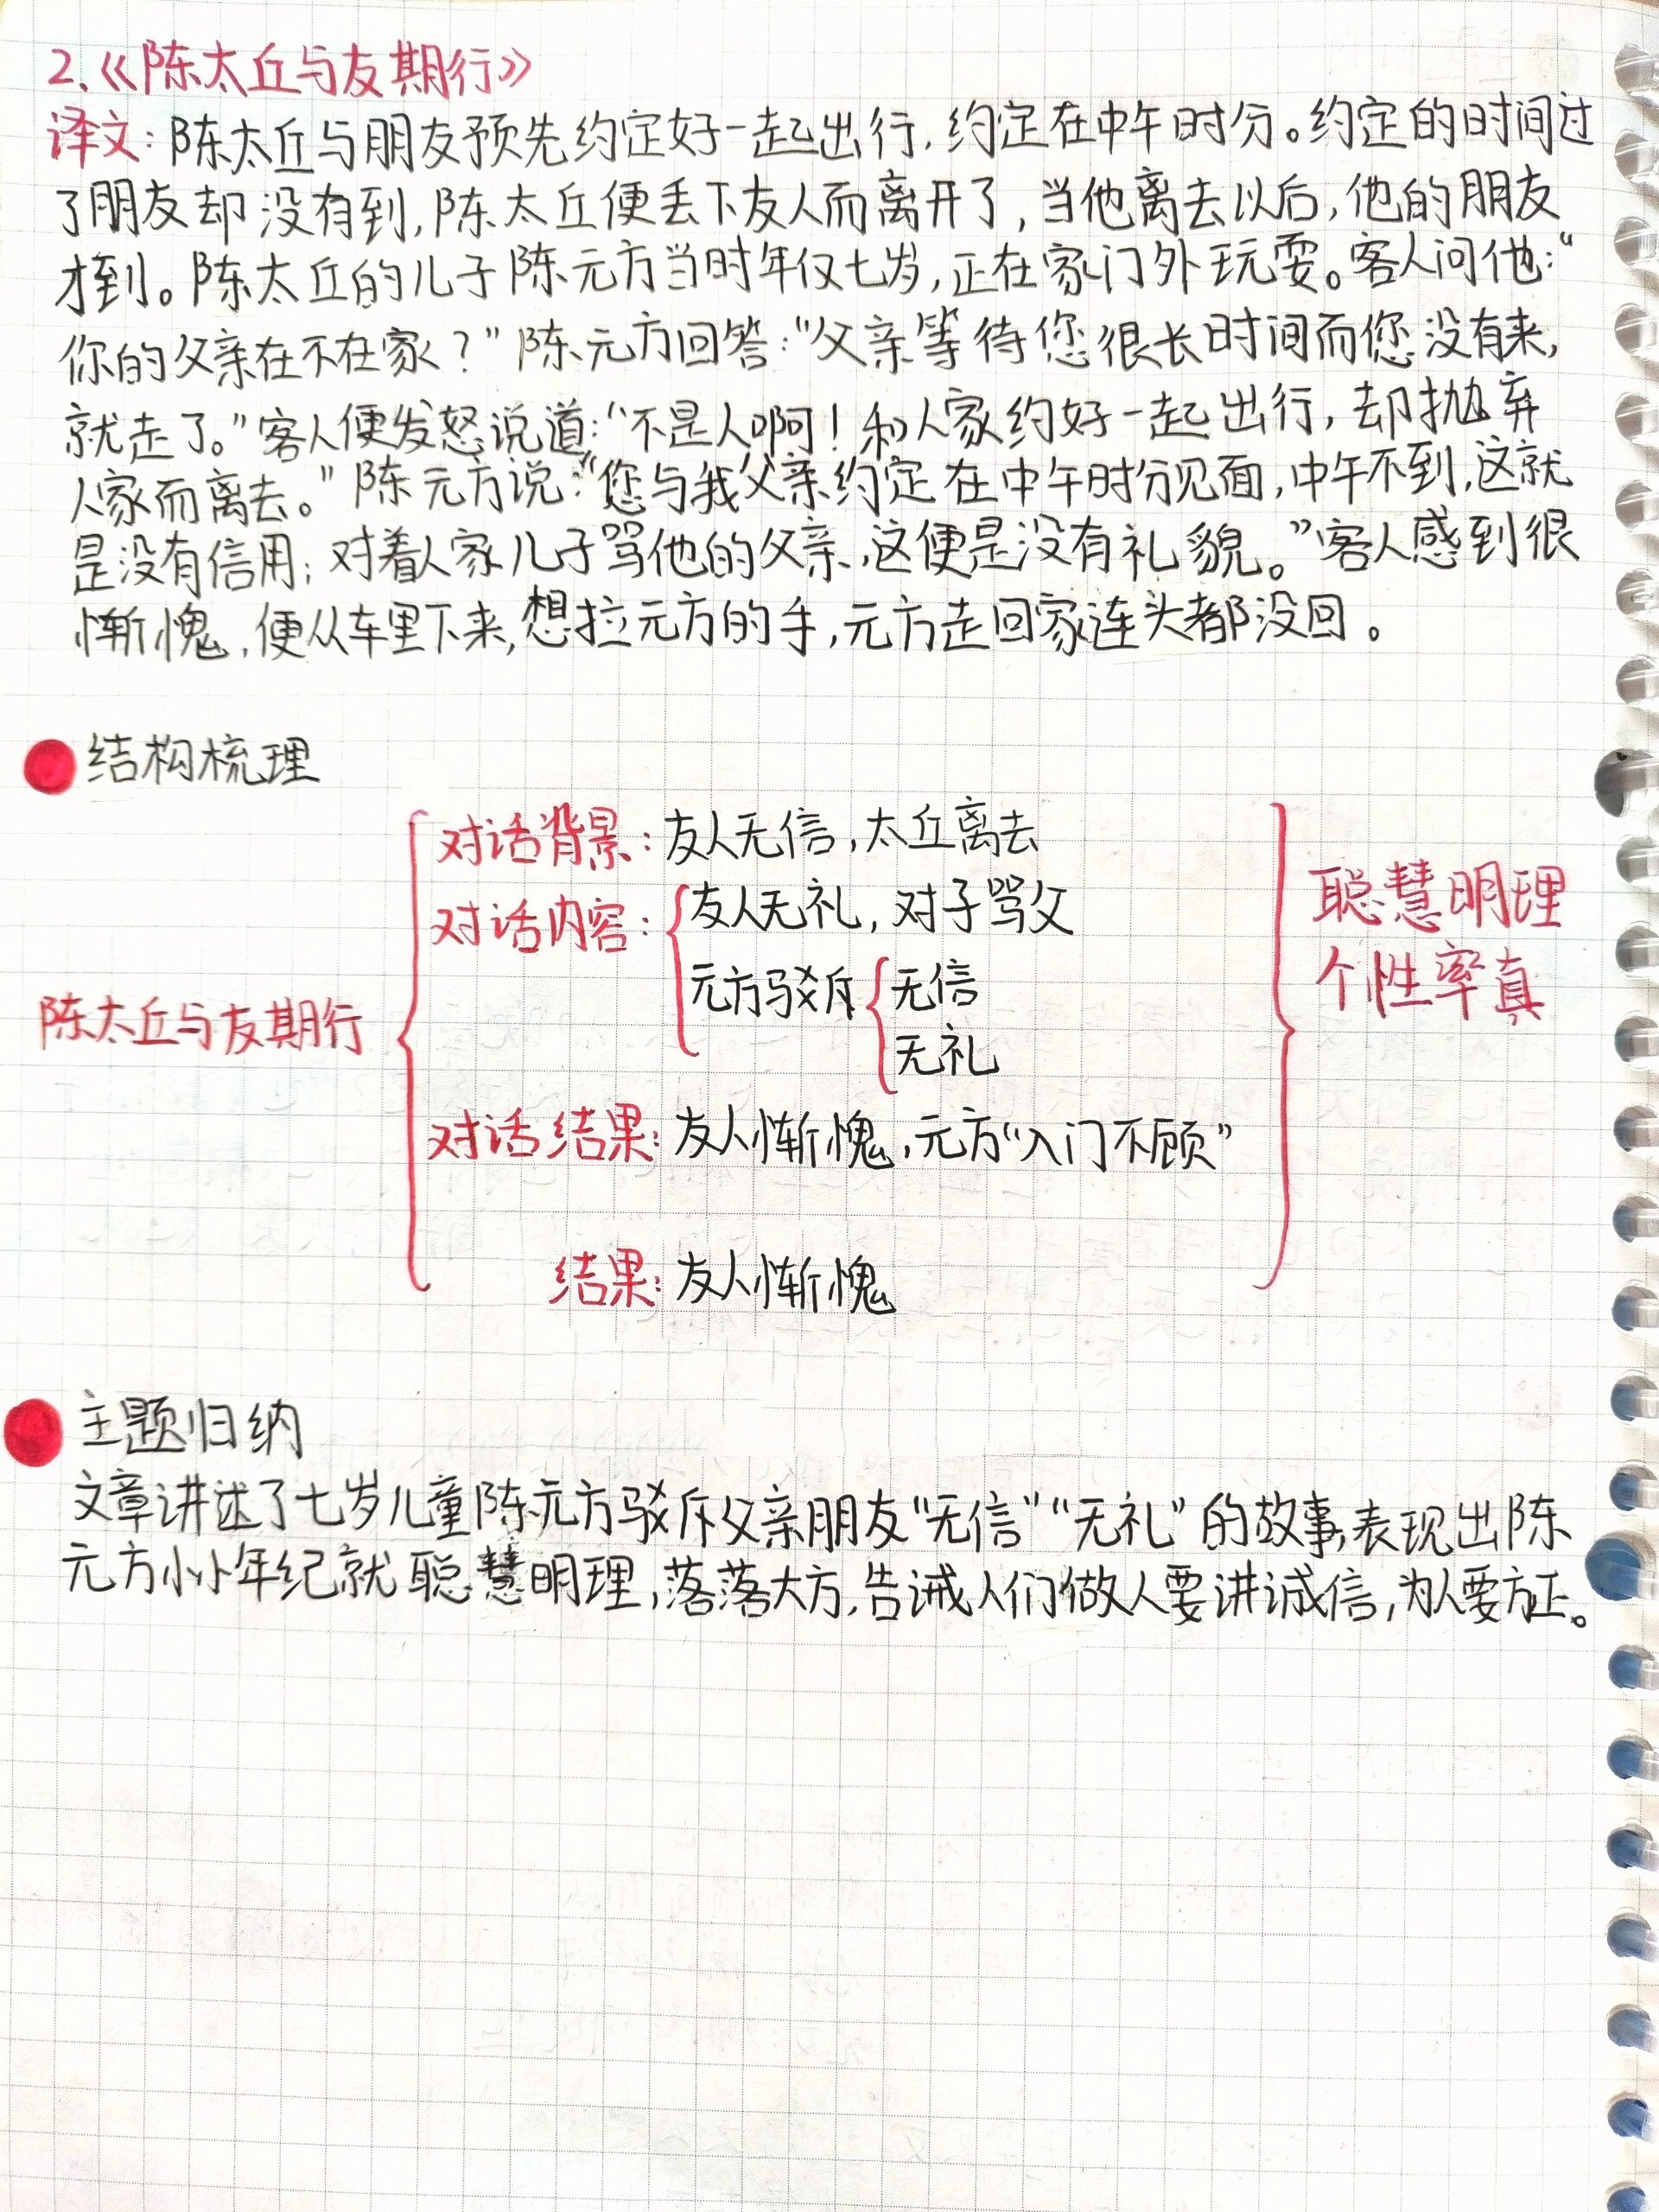 2.《陈太丘与友期行》
译文:陈太丘与朋友预先约定好一起出行,约定在中午时分。约定的时间过
了朋友却没有到,陈太丘便丢下友人而离开了,当他离去以后,他的朋友
才到。陈太丘的儿子陈元方当时年仅七岁,正在家门外玩耍。客人问他:“
你的父亲在不在家?”陈元方回答:“父亲等待您很长时间而您没有来,
就走了。”客人便发怒说道:“不是人啊!和人家约好一起出行,却抛弃
人家而离去。”陈元方说:“您与我父亲约定在中午时分见面,中午不到,这就
是没有信用;对着人家儿子骂他的父亲,这便是没有礼貌。”客人感到很
惭愧,便从车里下来,想拉元方的手,元方走回家连头都没回。
结构梳理
对话背景:友人无信,太丘离去
对话内容:友人无礼,对子骂父
元方驳斥 无信
无礼
陈太丘与友期行
聪慧明理
个性率真
对话结果:友人惭愧,元方“入门不顾”
结果:友人惭愧
主题归纳
文章讲述了七岁儿童陈元方驳斥父亲朋友“无信”“无礼”的故事,表现出陈
元方小小年纪就聪慧明理,落落大方,告诫人们做人要讲诚信,为人要方正。